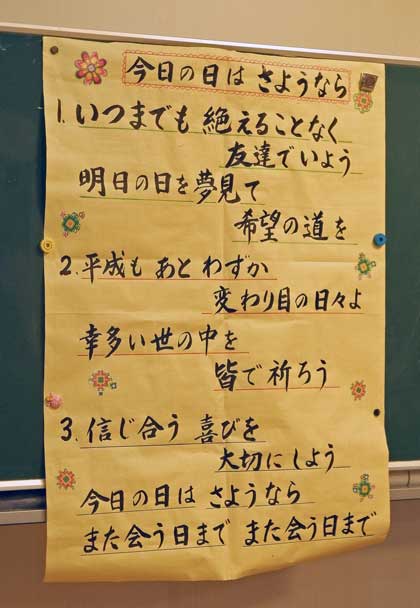 今日の日は さようなら
1. いつまでも 絶えることなく
友達でいよう
明日の日を夢見て
希望の道を
2. 平成も あと わずか
変わり目の日々よ
幸多い世の中を
皆で祈ろう
3. 信じ合う 喜びを
大切にしよう
今日の日は さようなら
また会う日まで また会う日まで